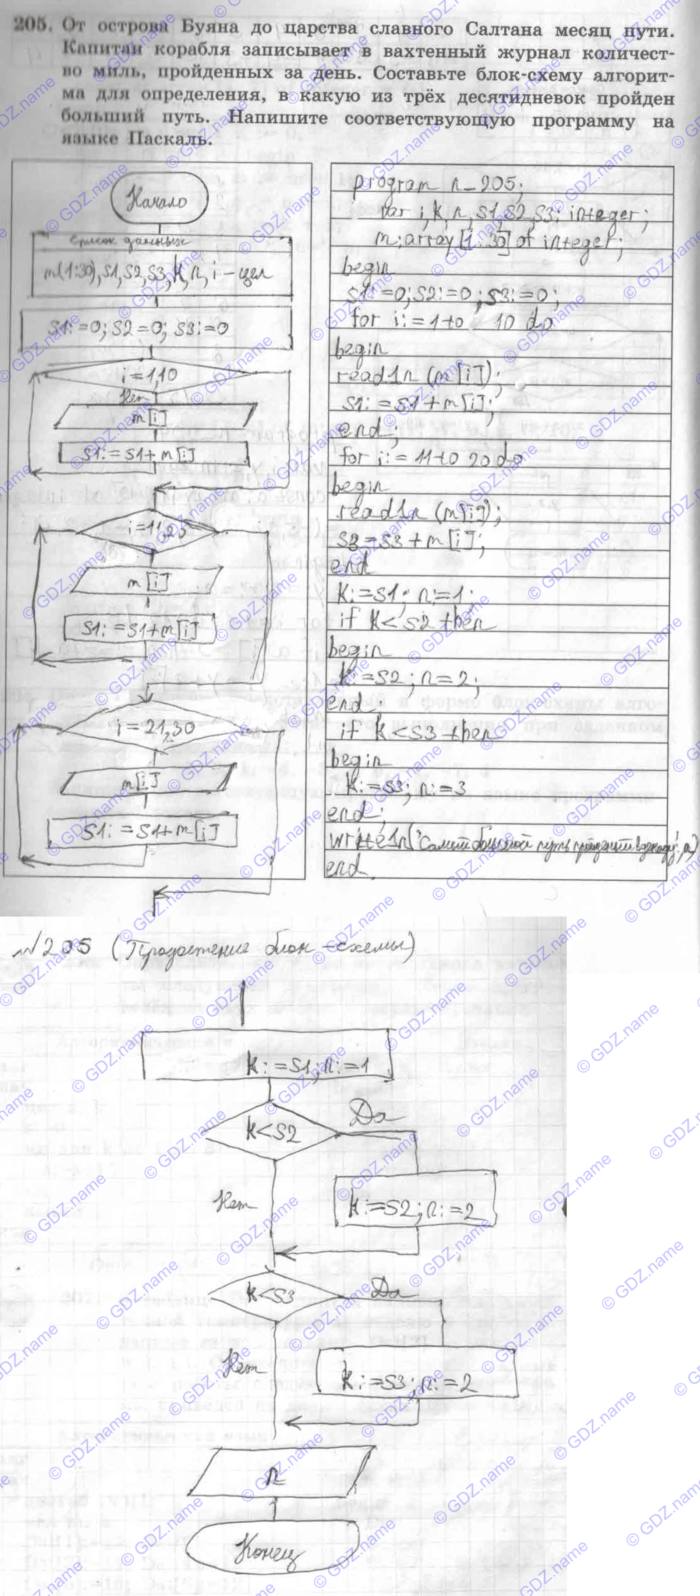 205. От острова Буяна до царства славного Салтана месяц пути.
Капитан корабля записывает в вахтенный журнал количест-
во миль, пройденных за день. Составьте блок-схему алгорит-
ма для определения, в какую из трёх десятидневок пройден
больший путь. Напишите соответствующую программу на
языке Паскаль.
Начало
Список данных
m(1:30), S1, S2, S3, k, n, i - цел
S1:=0; S2=0; S3:=0
i=1,10
Нет
m[i]
S1:=S1+m[i]
i=11,20
m[i]
S1:=S1+m[i]
i=21,30
m[i]
S1:=S1+m[i]
program n_205;
var i,k,n,S1,S2,S3: integer;
m:array[1..30] of integer;
begin
S1:=0;S2:=0;S3:=0;
for i:=1 to 10 do
begin
readln (m[i]);
S1:=S1+m[i];
end;
for i:=11 to 20 do
begin
readln (m[i]);
S3=S3+m[i];
end
K:=S1; n:=1;
if k<S2 then
begin
k:=S2; n=2;
end
if k<S3 then
begin
k:=S3; n:=3
end;
writeln('Самый большой путь пройденный в декаду', n)
end.
№205 (Продолжение блок-схемы)
k:=S1; n:=1
k<S2
Да
Нет
k:=S2; n:=2
k<S3
Да
Нет
k:=S3; n:=2
n
Конец
© GDZ.name